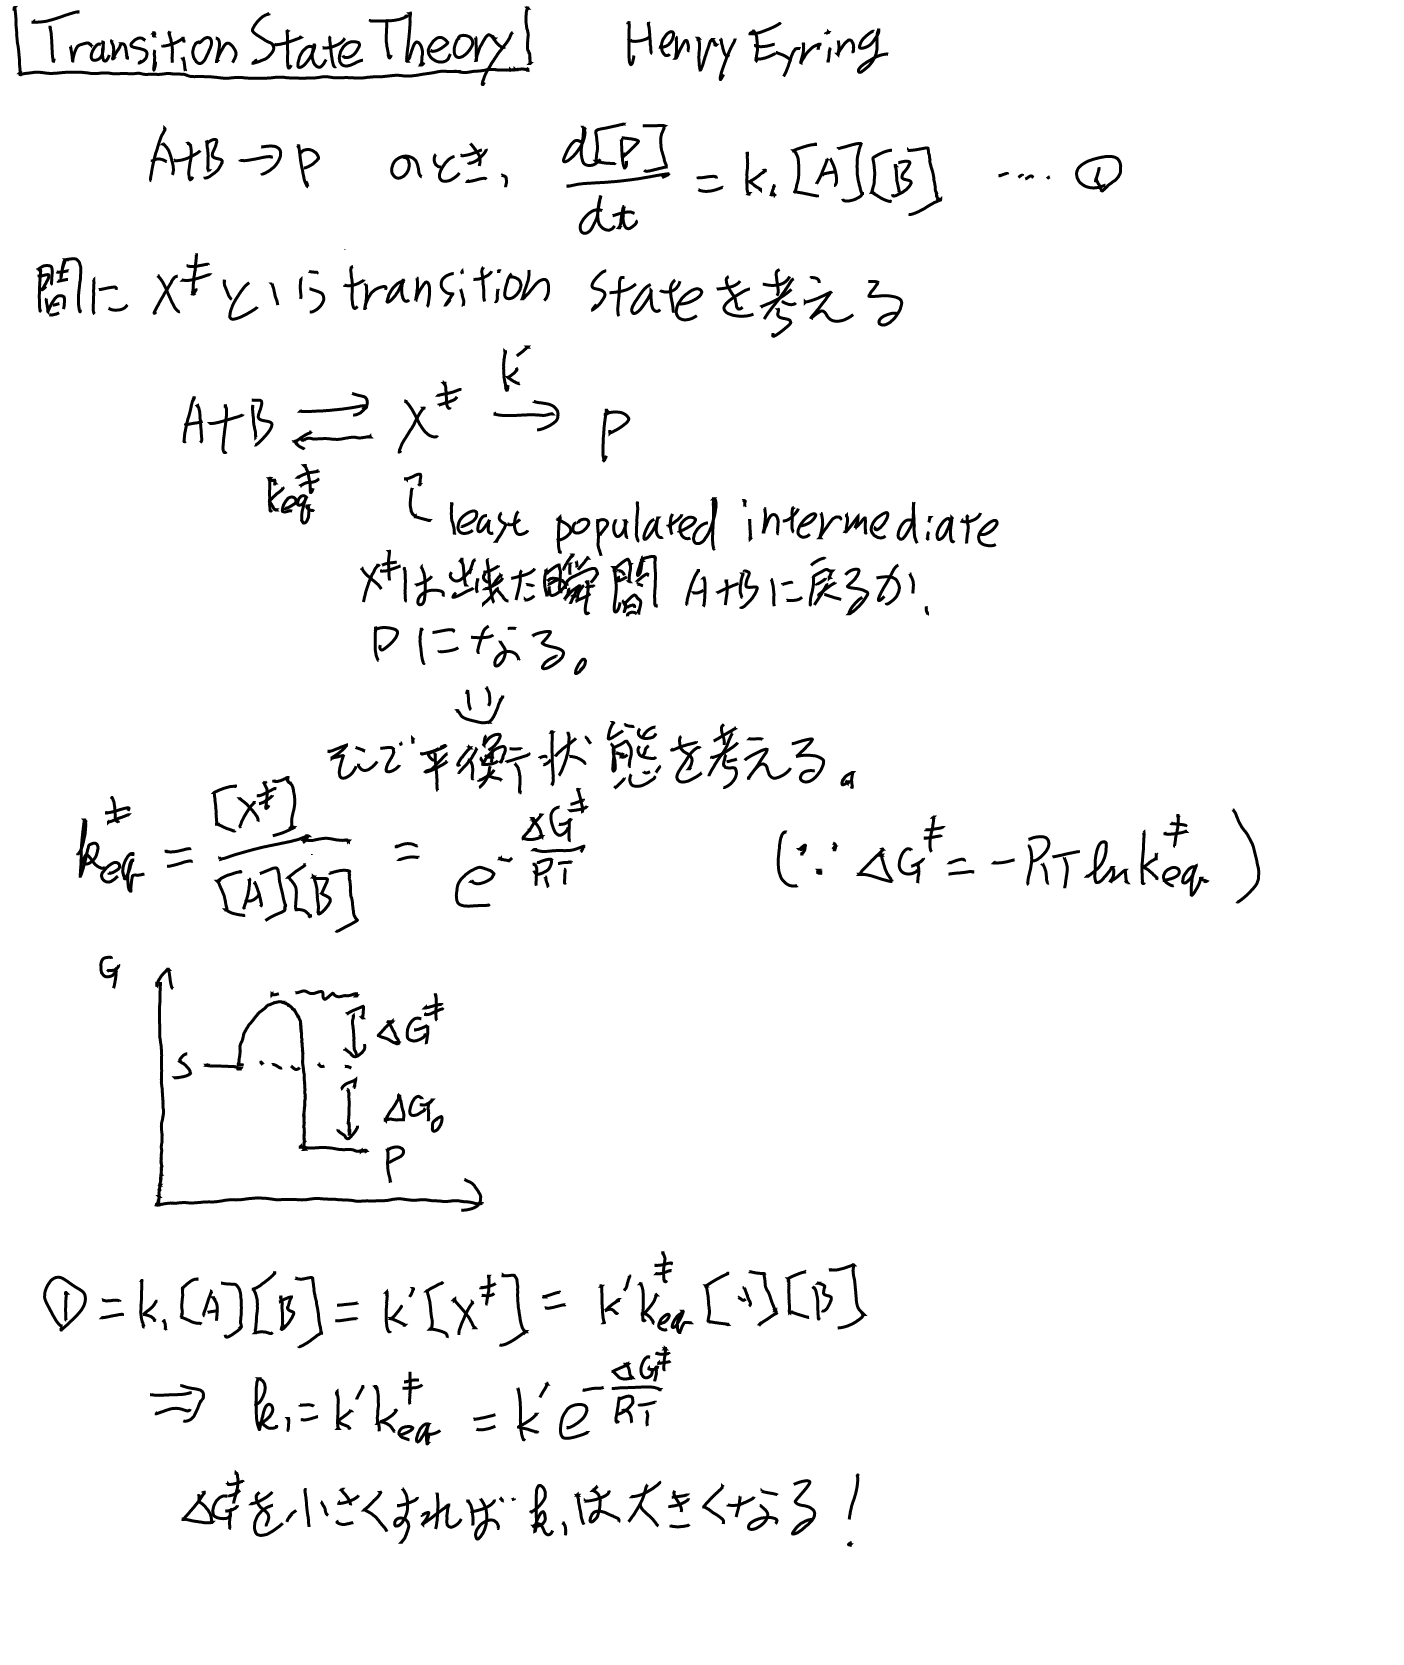 Transition State Theory Henry Eyring
A+B→P のとき、 d[P]/dt = k₁[A][B] ‥‥ ①
間に X‡ という transition state を考える
k'
A+B ⇄ X‡ → P
keq‡
least populated intermediate
X‡は出来た瞬間 A+Bに戻るか、
Pになる。
そこで平衡状態を考える。
keq‡ = [X‡]/[A][B] = e^(-ΔG‡/RT) (∵ ΔG‡ = -RT ln keq‡)
G
ΔG‡
S
ΔG₀
P
① = k₁[A][B] = k'[X‡] = k'keq‡[A][B]
⇒ k₁ = k'keq‡ = k'e^(-ΔG‡/RT)
ΔG‡を小さくすれば k₁は大きくなる!